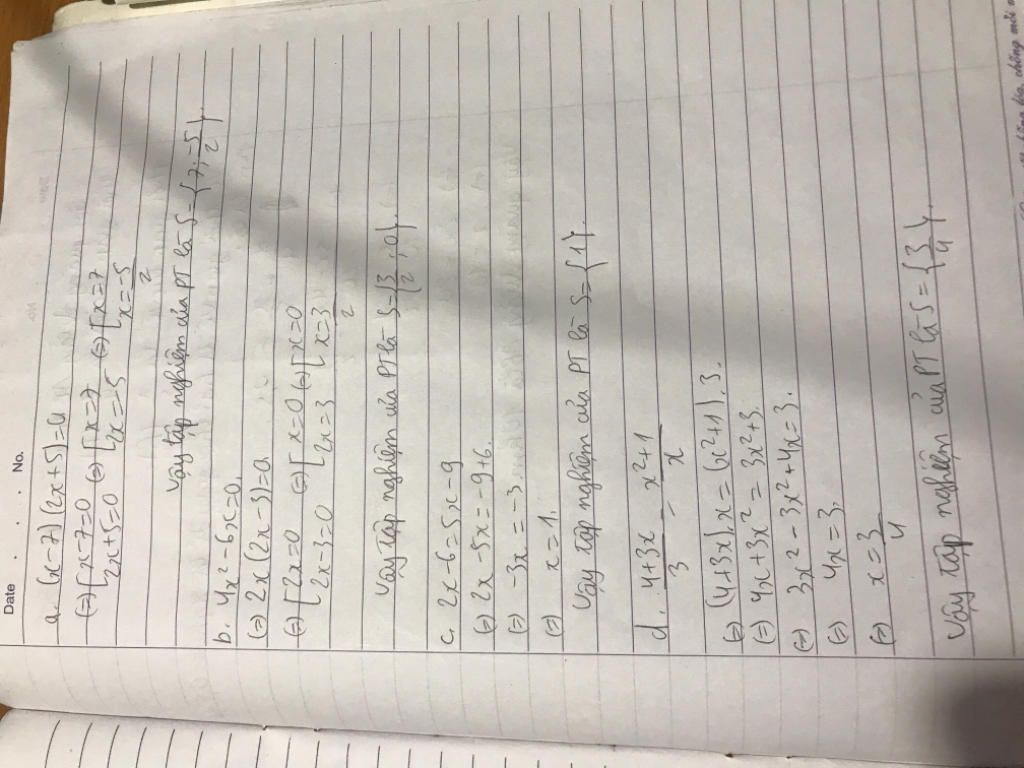 Date . . . No.
a. (x-7)(2x+5)=0
(=) [x-7=0 (=) [x=7 (=) [x=7
2x+5=0 2x=-5 x=-5/2
Vậy tập nghiệm của PT là S={7; -5/2}.
b. 4x²-6x=0.
(=) 2x(2x-3)=0
(=) [2x=0 (=) [x=0 (=) [x=0
2x-3=0 2x=3 x=3/2
Vậy tập nghiệm của PT là S={3/2; 0}.
c. 2x-6=5x-9
(=) 2x-5x=-9+6.
(=) -3x=-3.
(=) x=1.
Vậy tập nghiệm của PT là S={1}.
d. 4+3x/3 = x²+1/x
(=) (4+3x).x = (x²+1).3.
(=) 4x+3x² = 3x²+3.
(=) 3x²-3x²+4x=3.
(=) 4x=3.
(=) x=3/4
Vậy tập nghiệm của PT là S={3/4}.